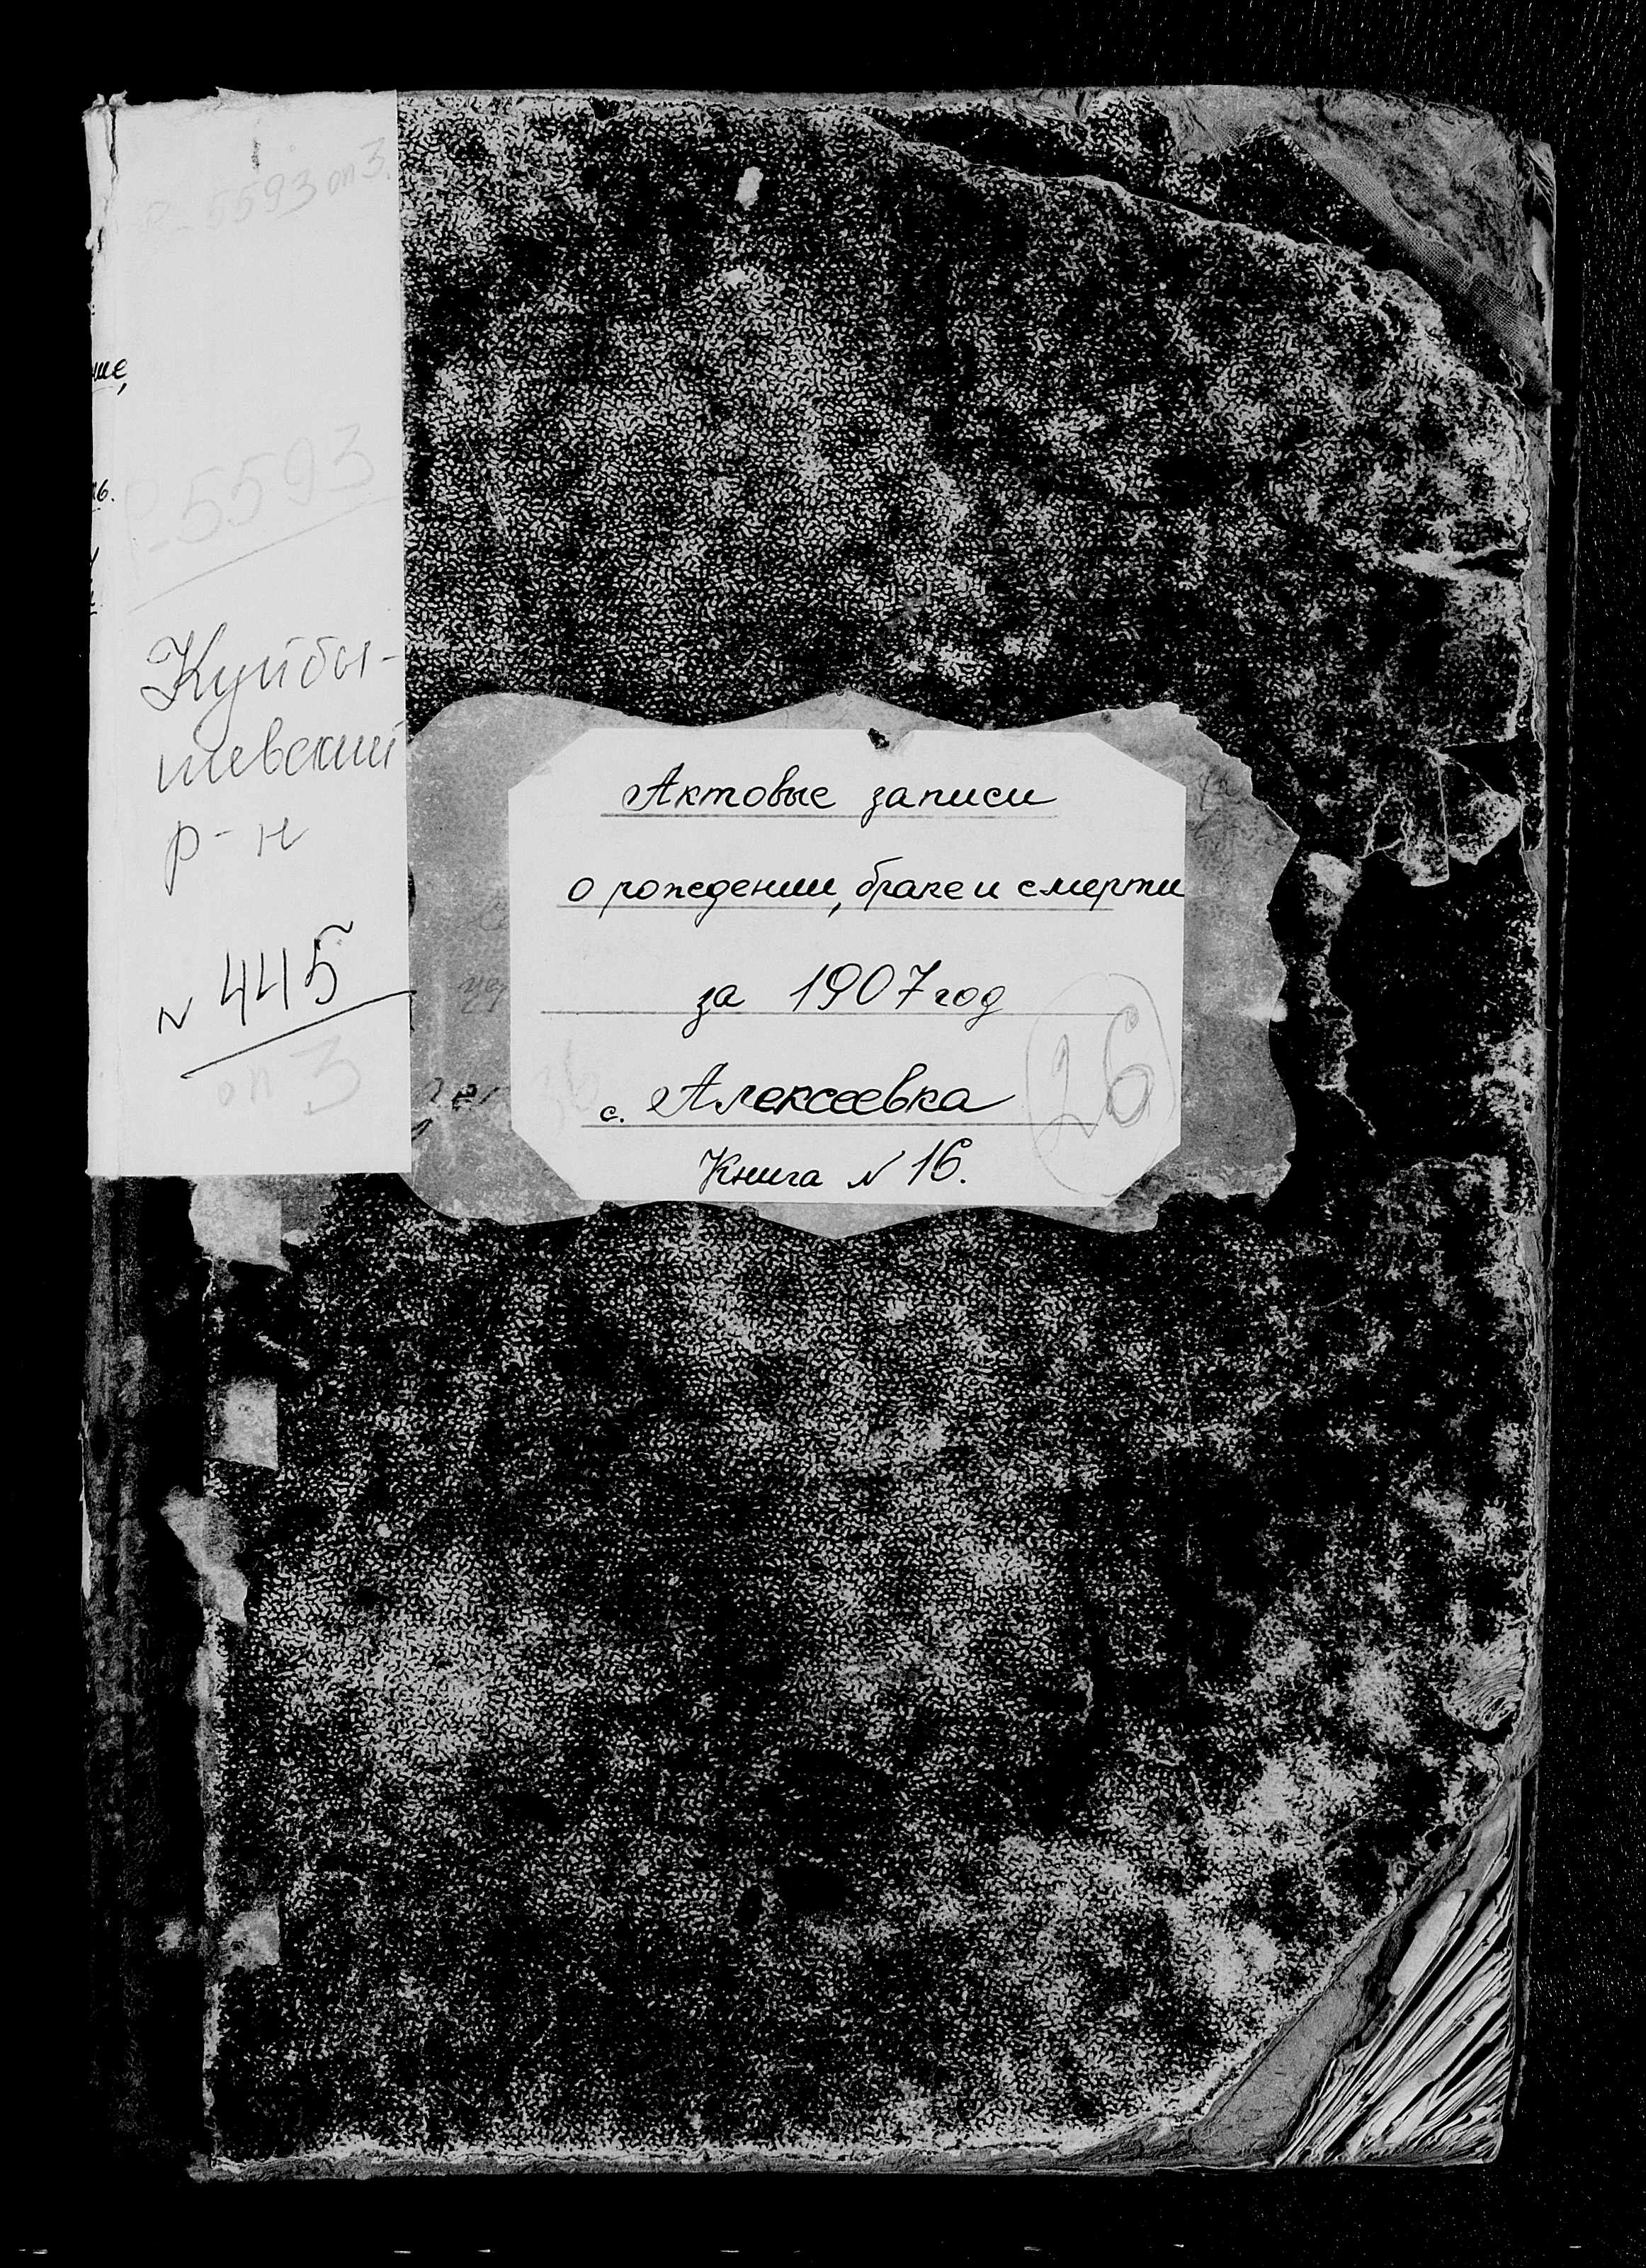 Р-5593 оп 3.
Р-5593
Куйбы-
шевский
р-н
N 445
оп 3
Актовые записи
о рождении, браке и смерти
за 1907 год
с. Алексеевка
26
Книга N 16.